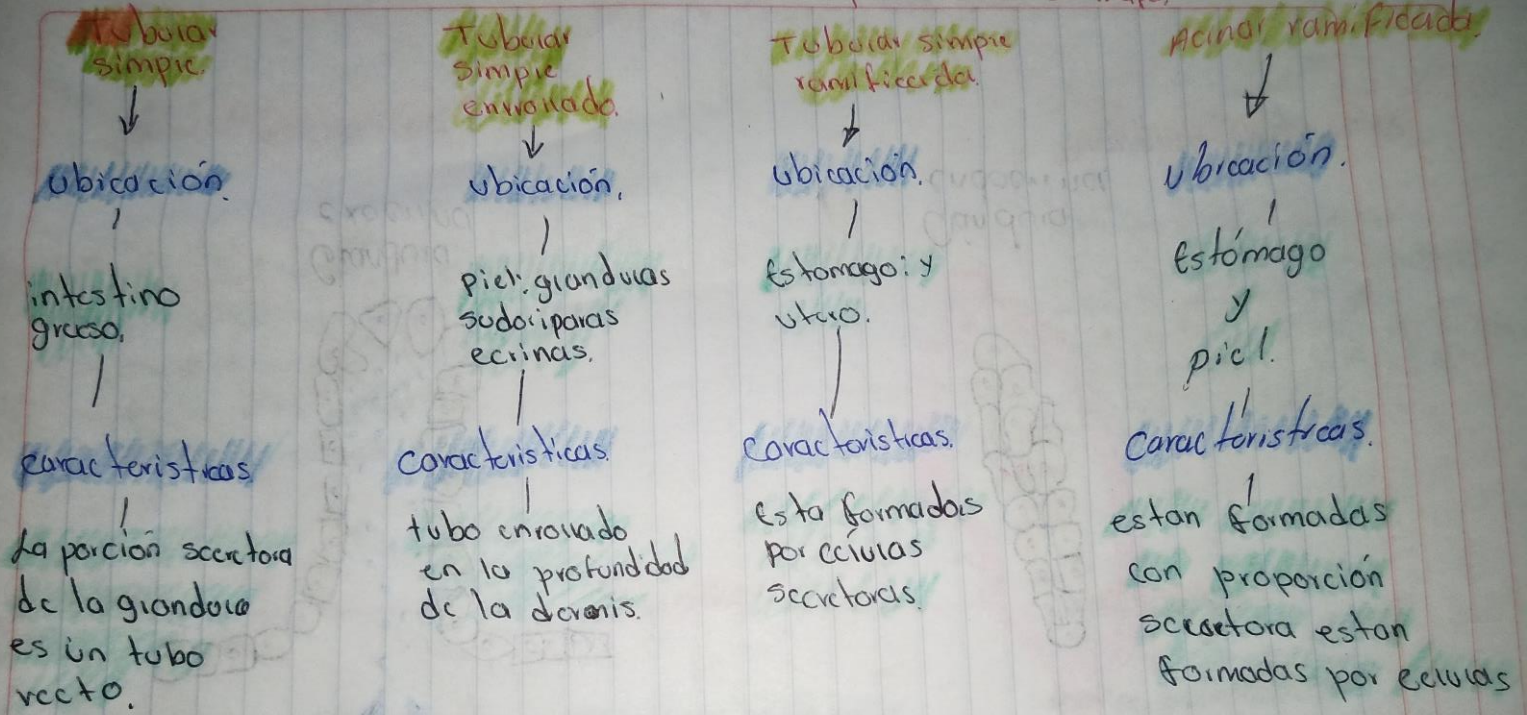 Tubular
simple.
↓
Ubicación.
intestino
grueso.
características
La porción secretora
de la glandula
es un tubo
recto.
Tubular
simple
enrrollado.
↓
Ubicación.
piel: glandulas
sudoriparas
ecrinas.
características.
tubo enrollado
en la profundidad
de la dermis.
Tubular simple
ramificada.
↓
Ubicación.
Estomago: y
utero.
Características.
Esta formadas
por celulas
secretoras.
Acinar ramificada.
↓
Ubicación.
Estómago
y
piel.
características.
estan formadas
con proporción
secretora estan
formadas por celulas